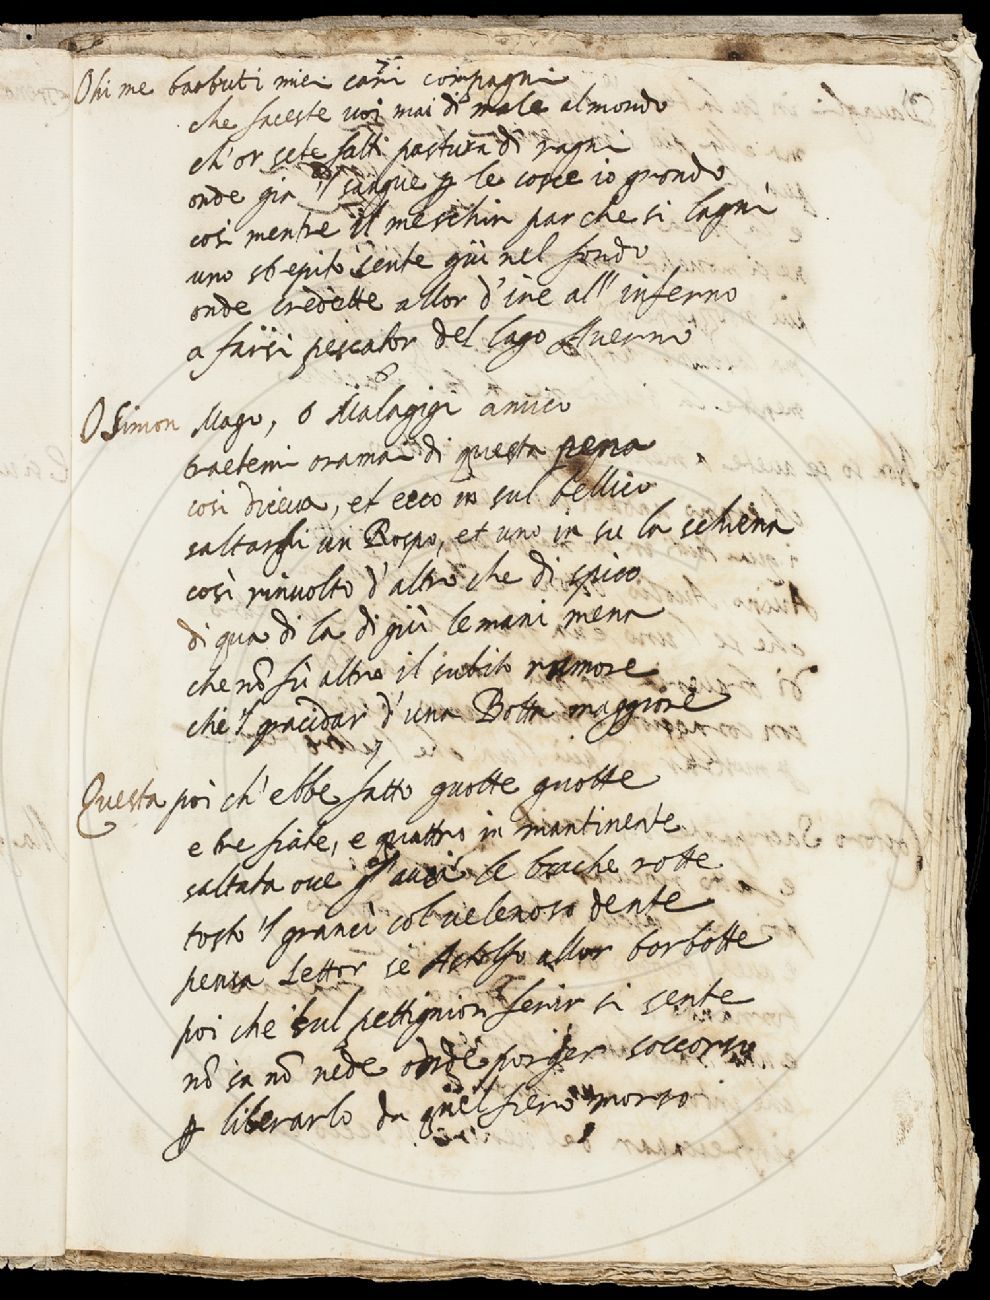 Ohime barbuti miei cari compagni
che faceste uoi mai di male al mondo
ch'or sete fatti pastura di ragni
onde gia 'l sangue p le cosce io grondo
cosi mentre il meschin par che si lagni
uno strepito sente giù nel fondo
onde credette allor d'ire all'inferno
a farsi pescator del lago Auerno
O Simon Mago, o Malagigi amico
traetemi oramai di questa pena
cosi diceua, et ecco in sul bellico
saltargli un Rospo, et uno in su la schena
così rinuolto d'altro che di spico
di qua di la di giù le mani mena
che nõ fù altro il subito rumore
che 'l gracidar d'una Botta maggiore
Questa poi ch'ebbe fatto guotte guotte
e tre fiate, e quattro in mantinente
saltata oue le brache rotte
tosto 'l grancì col uelenoso dente
pensa Lettor se Astolfo allor borbotte
poi che sul pettignion ferir si sente
nõ sa nõ uede onde porger soccorso
p liberarlo da quel fiero morso